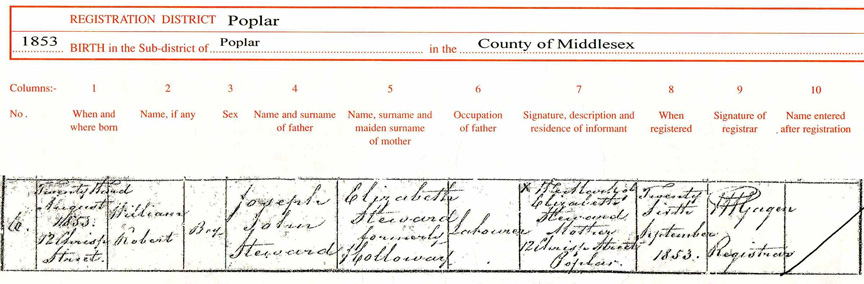 REGISTRATION DISTRICT Poplar
1853 BIRTH in the Sub-district of Poplar in the County of Middlesex
Columns:- 1 2 3 4 5 6 7 8 9 10
No. When and where born Name, if any Sex Name and surname of father Name, surname and maiden surname of mother Occupation of father Signature, description and residence of informant When registered Signature of registrar Name entered after registration
August
1853.
12 Chrisp
Street.
William
Robert
Boy
Joseph
John
Steward
Elizabeth
Steward
formerly
Holloway
Labourer
X The Mark of
Elizabeth
Steward
Mother
12 Chrisp Street
Poplar.
Twenty
Sixth
September
1853.
Registrar